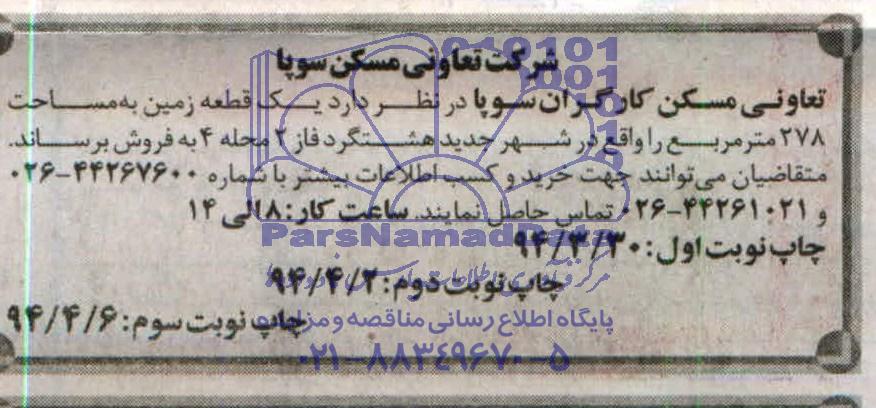 شرکت تعاونی مسکن سوپا
تعاونی مسکن کارگران سوپا در نظر دارد یک قطعه زمین به مساحت
۲۷۸ مترمربع را واقع در شهر جدید هشتگرد فاز ۲ محله ۴ به فروش برساند.
متقاضیان می‌توانند جهت خرید و کسب اطلاعات بیشتر با شماره ۴۴۲۶۷۶۰۰-۰۲۶
و ۴۴۲۶۱۰۲۱-۰۲۶ تماس حاصل نمایند. ساعت کار: ۸ الی ۱۴
ParsNamadData
چاپ نوبت اول: ۹۴/۳/۳۰
چاپ نوبت دوم: ۹۴/۴/۲
چاپ نوبت سوم: ۹۴/۴/۶
پایگاه اطلاع رسانی مناقصه و مزایده
۰۲۱-۸۸۳۴۹۶۷۰-۵